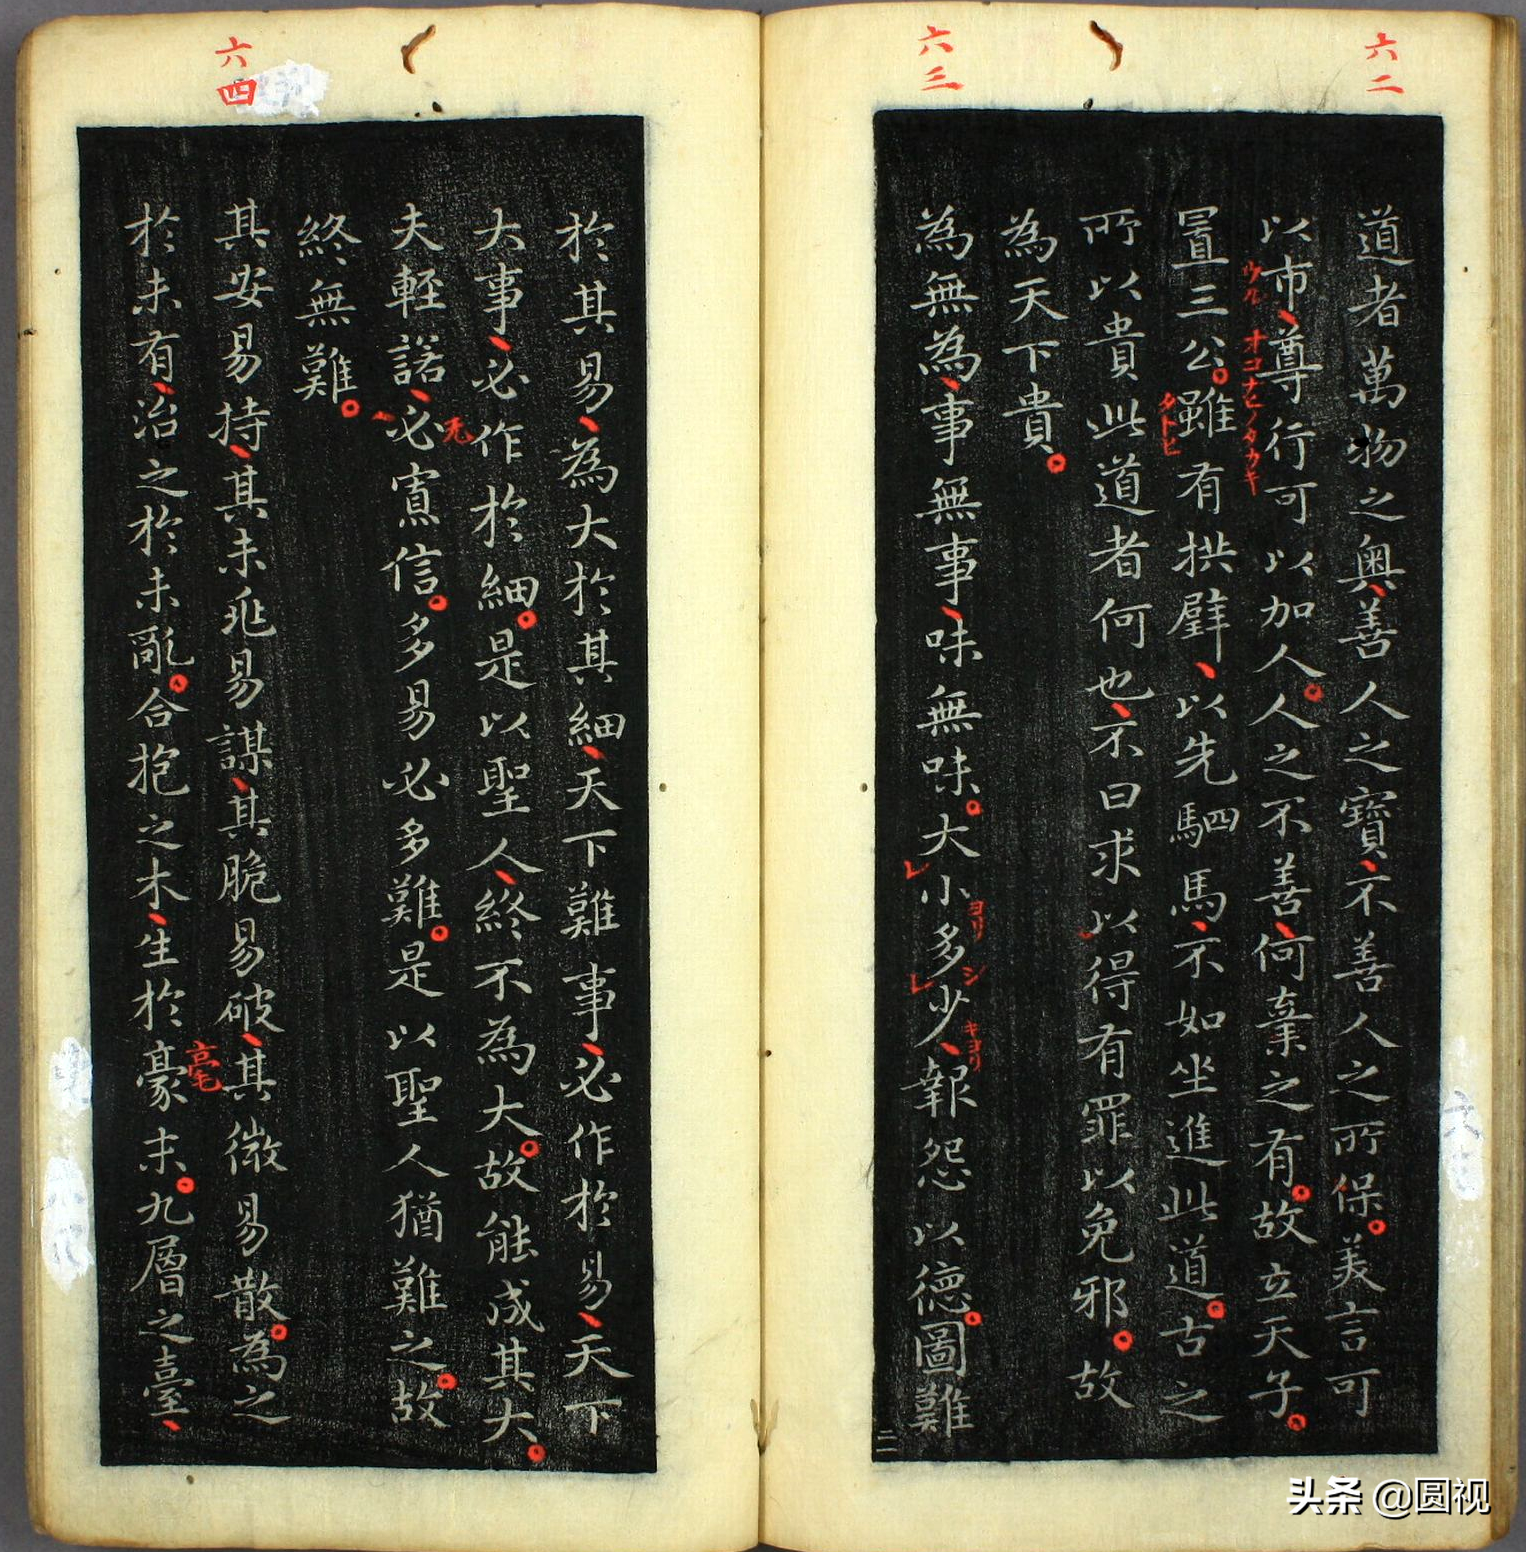 六二
道者萬物之奧善人之寶不善人之所保美言可
以市尊行可以加人人之不善何棄之有故立天子
置三公雖有拱璧以先駟馬不如坐進此道古之
所以貴此道者何也不曰求以得有罪以免邪故
為天下貴
六三
為無為事無事味無味大小多少報怨以德圖難
於其易為大於其細天下難事必作於易天下
大事必作於細是以聖人終不為大故能成其大
夫輕諾必寡信多易必多難是以聖人猶難之故
終無難
六四
其安易持其未兆易謀其脆易破其微易散為之
於未有治之於未亂合抱之木生於豪末九層之臺
ウル
オコナヒノタカキ
タトヒ
ヨリ
シ
キヨリ
毫
二一
头条 @圆视